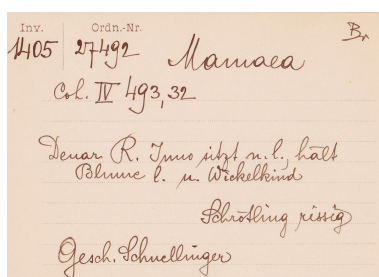 Inv. Ordn.-Nr. Br
1405 27492 Mamaea
Coh. IV 493,32
Denar R. Juno sitzt n. l., hält
Blume l. u. Wickelkind
Schrötling rissig
Gesch. Schnellinger